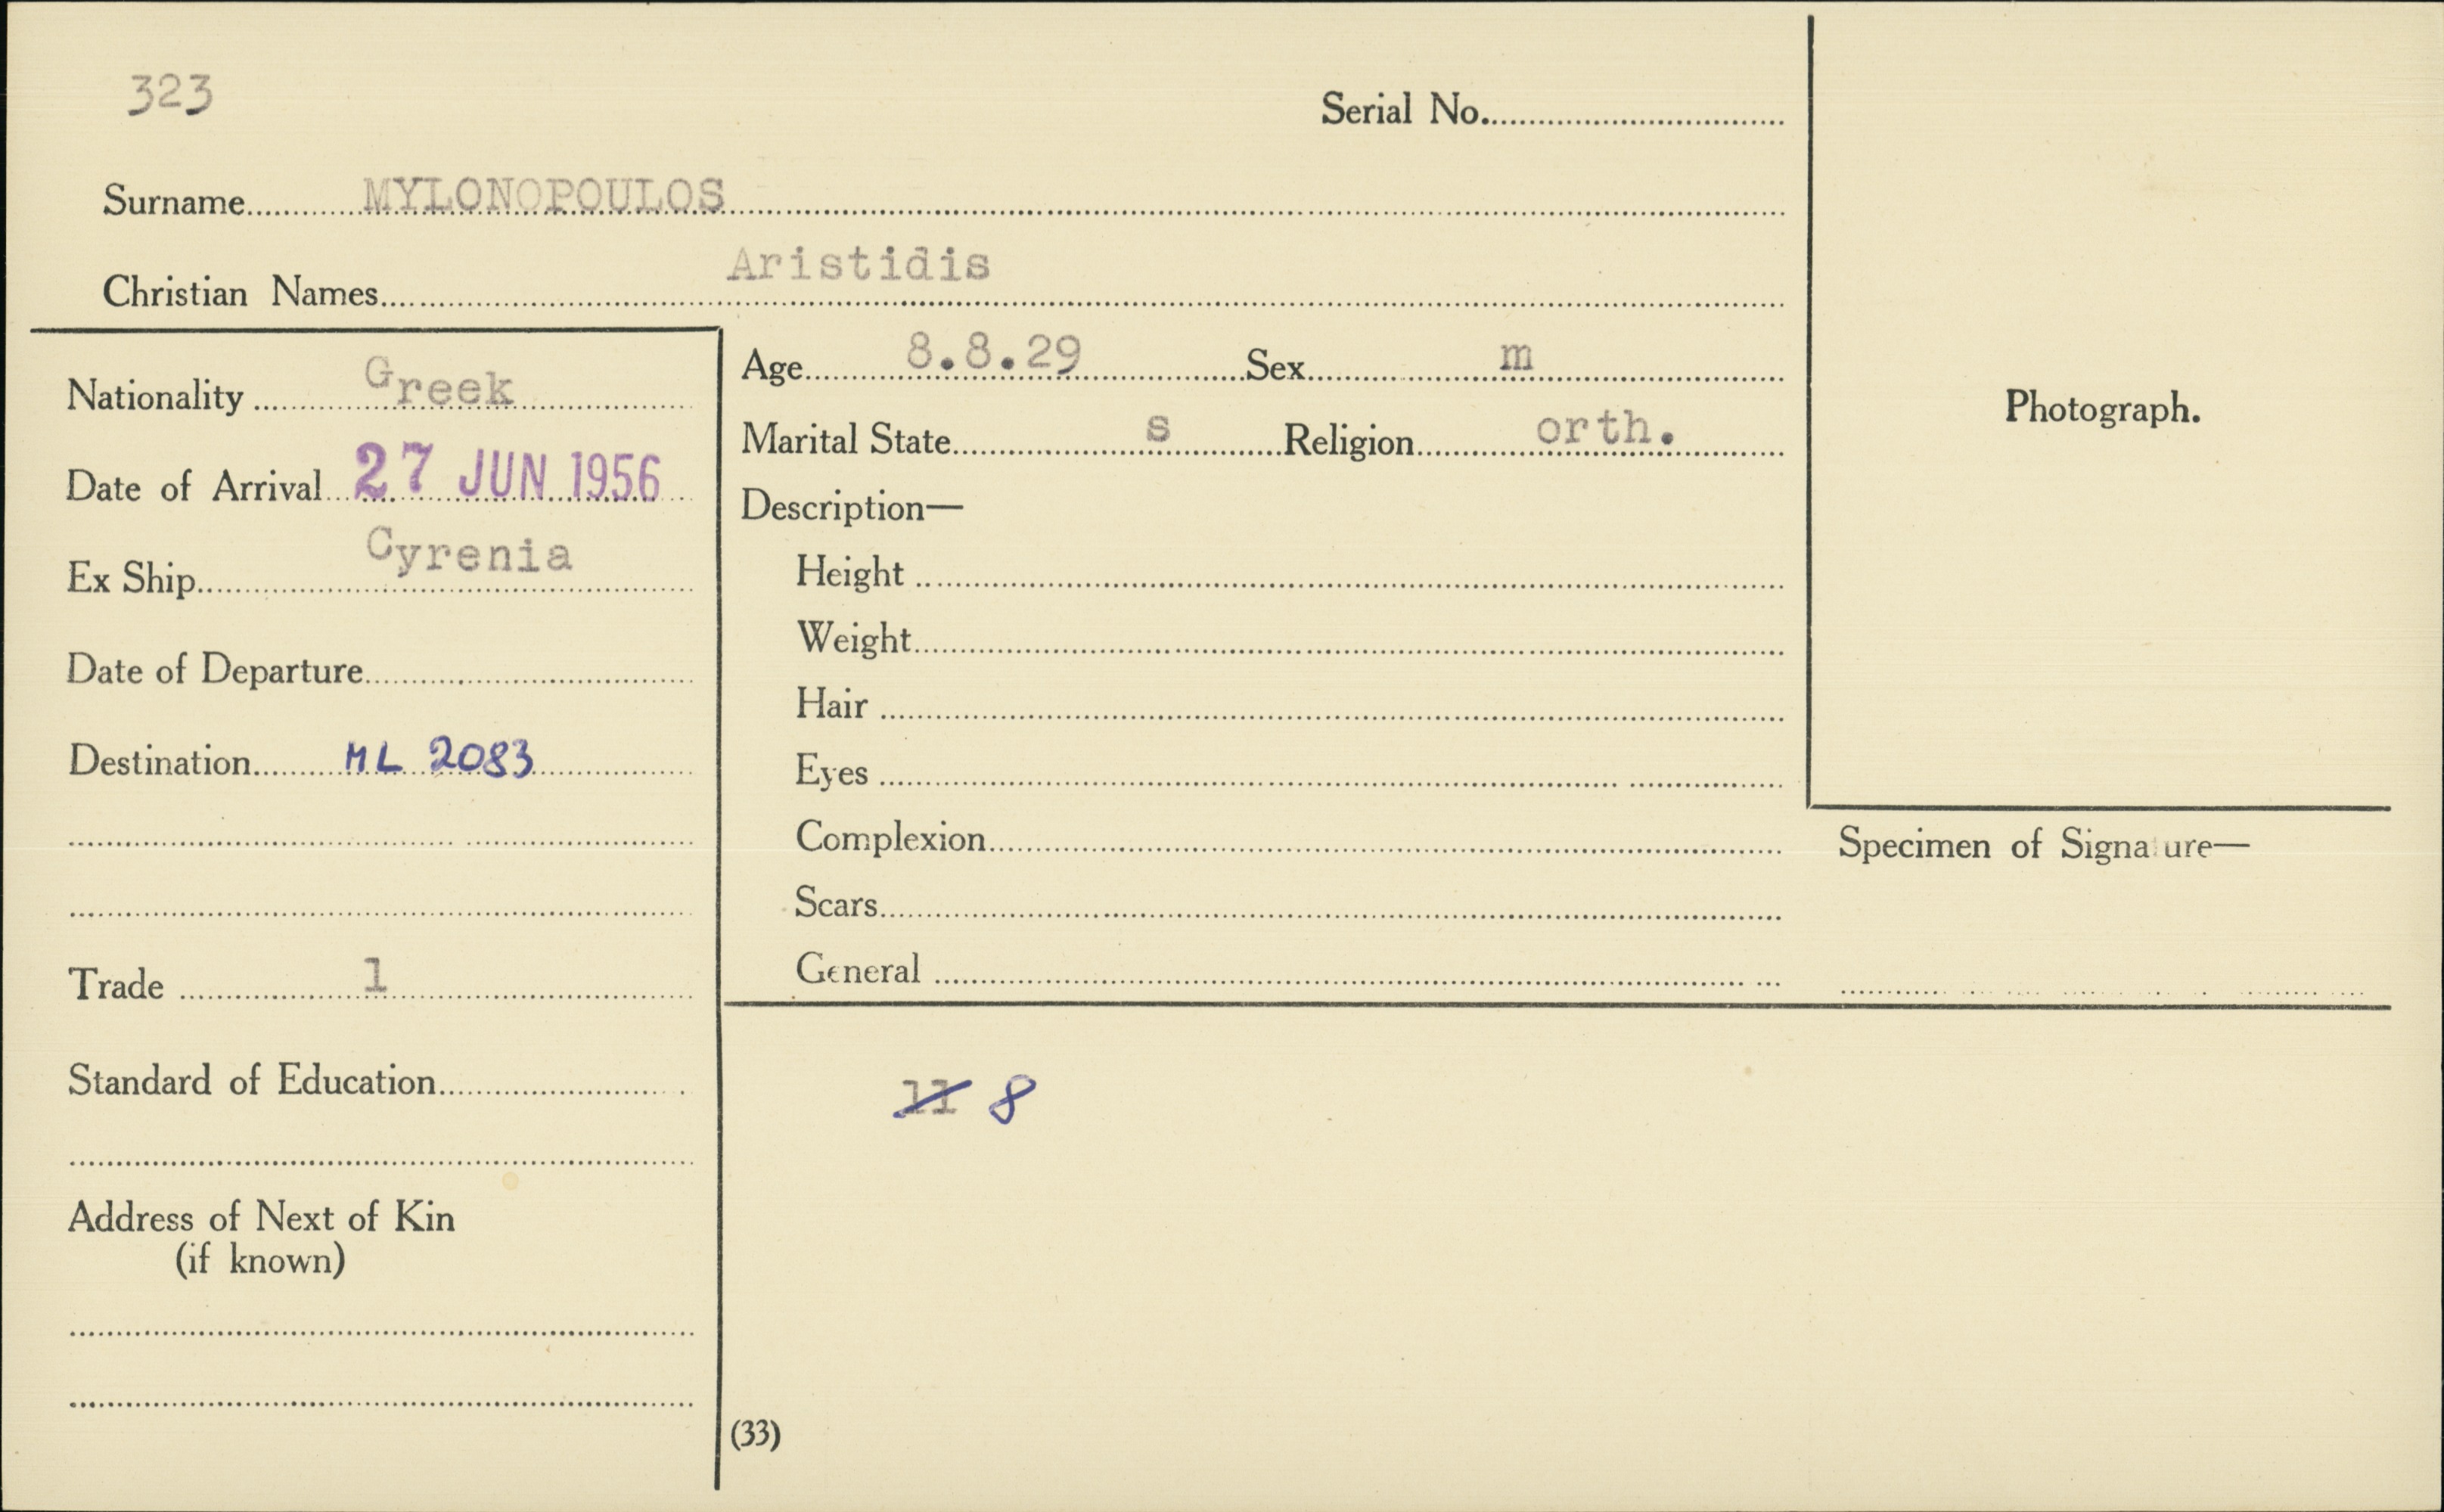 323
Serial No.
Surname MYLONOPOULOS
Christian Names Aristidis
Nationality Greek
Date of Arrival 27 JUN 1956
Ex Ship Cyrenia
Date of Departure
Destination ML 2083
Trade 1
Standard of Education
Address of Next of Kin
(if known)
Age 8.8.29 Sex m
Marital State s Religion orth.
Description—
Height
Weight
Hair
Eyes
Complexion
Scars
General
Photograph.
Specimen of Signature—
11 8
(33)